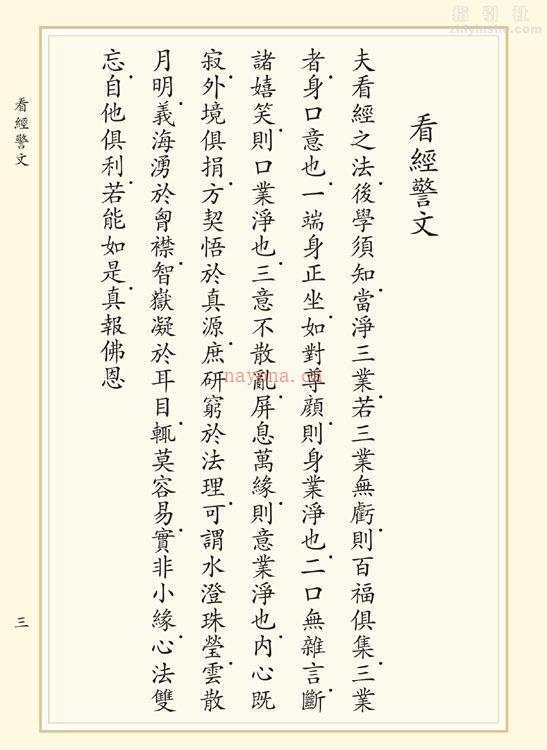 指引社
zhiyinshe.com
看經警文
夫看經之法後學須知當淨三業若三業無虧則百福俱集三業
者身口意也一端身正坐如對尊顔則身業淨也二口無雜言斷
諸嬉笑則口業淨也三意不散亂屏息萬緣則意業淨也内心既
寂外境俱捐方契悟於真源庶研窮於法理可謂水澄珠瑩雲散
月明義海湧於胷襟智嶽凝於耳目輒莫容易實非小緣心法雙
忘自他俱利若能如是真報佛恩
看經警文
三
nayona.cn